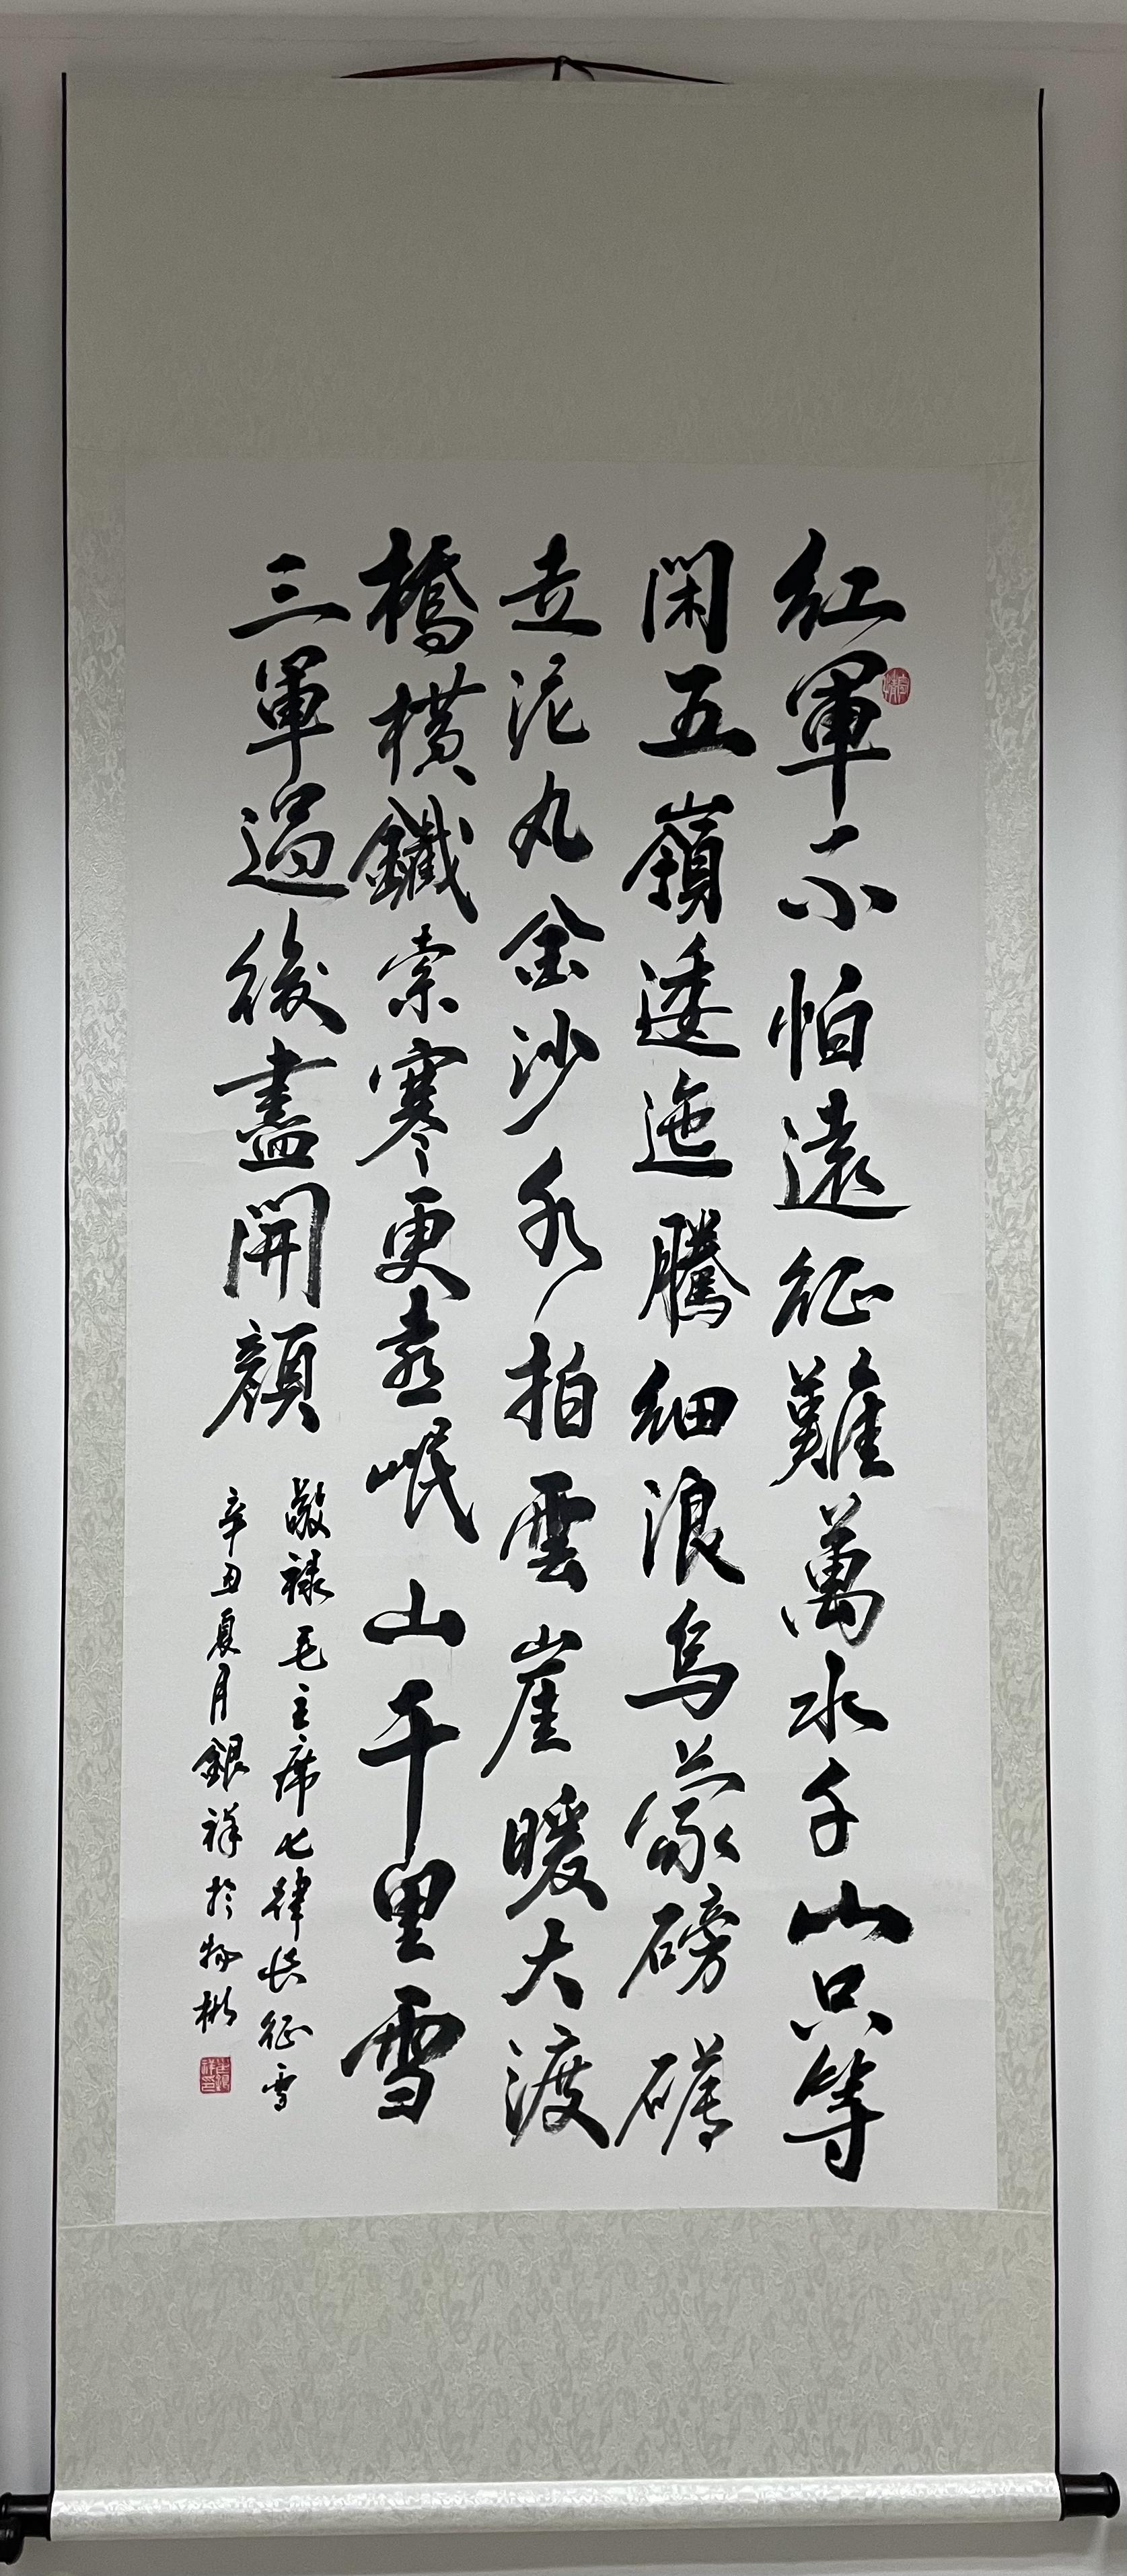 紅軍不怕遠征難萬水千山只等
閑五嶺逶迤騰細浪烏蒙磅礴
走泥丸金沙水拍雲崖暖大渡
橋橫鐵索寒更喜岷山千里雪
三軍過後盡開顏
敬祿毛主席七律長征
辛丑夏月銀祥於